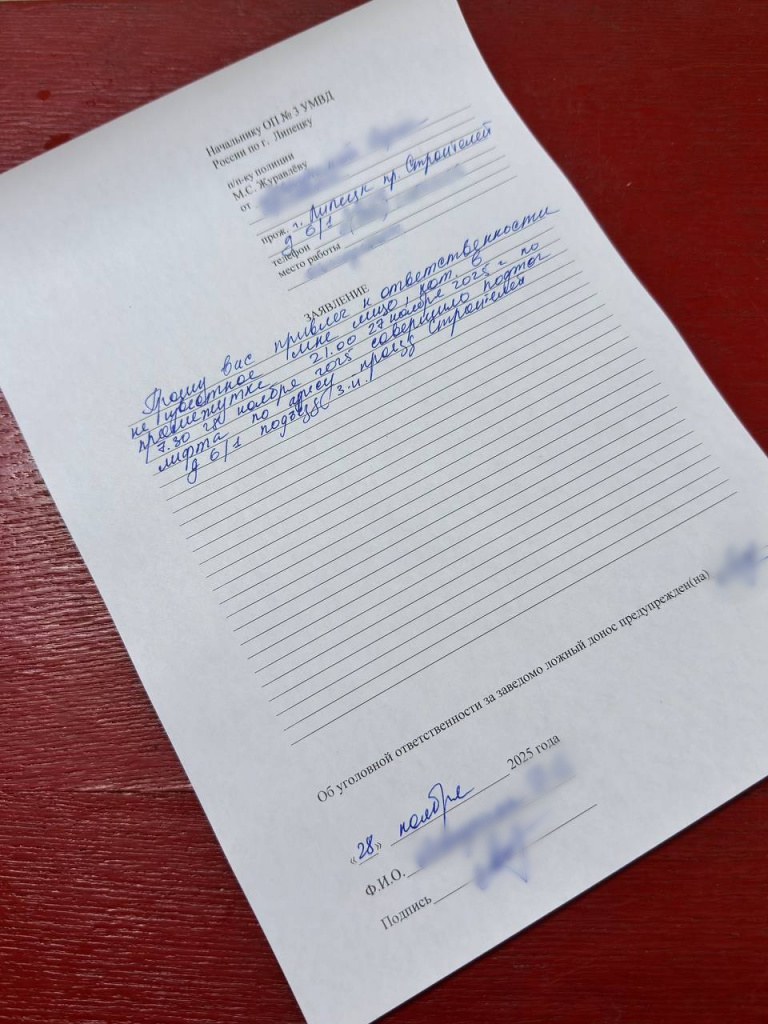 Начальнику ОП № 3 УМВД
России по г. Липецку
п/п-ку полиции
М.С. Журавлёву
от
прож. г. Липецк пр. Строителей
д 6/1
телефон
место работы
ЗАЯВЛЕНИЕ
Прошу вас привлеч к ответственности
не известное мне лицо, кот. в
промежутке 21.00 27 ноября 2025 г по
7.30 28 ноября 2025 совершило поджог
лифта по адресу проезд Строителей
д 6/1 подъезд 3.
Об уголовной ответственности за заведомо ложный донос предупрежден(на)
«28» ноября 2025 года
Ф.И.О.
Подпись